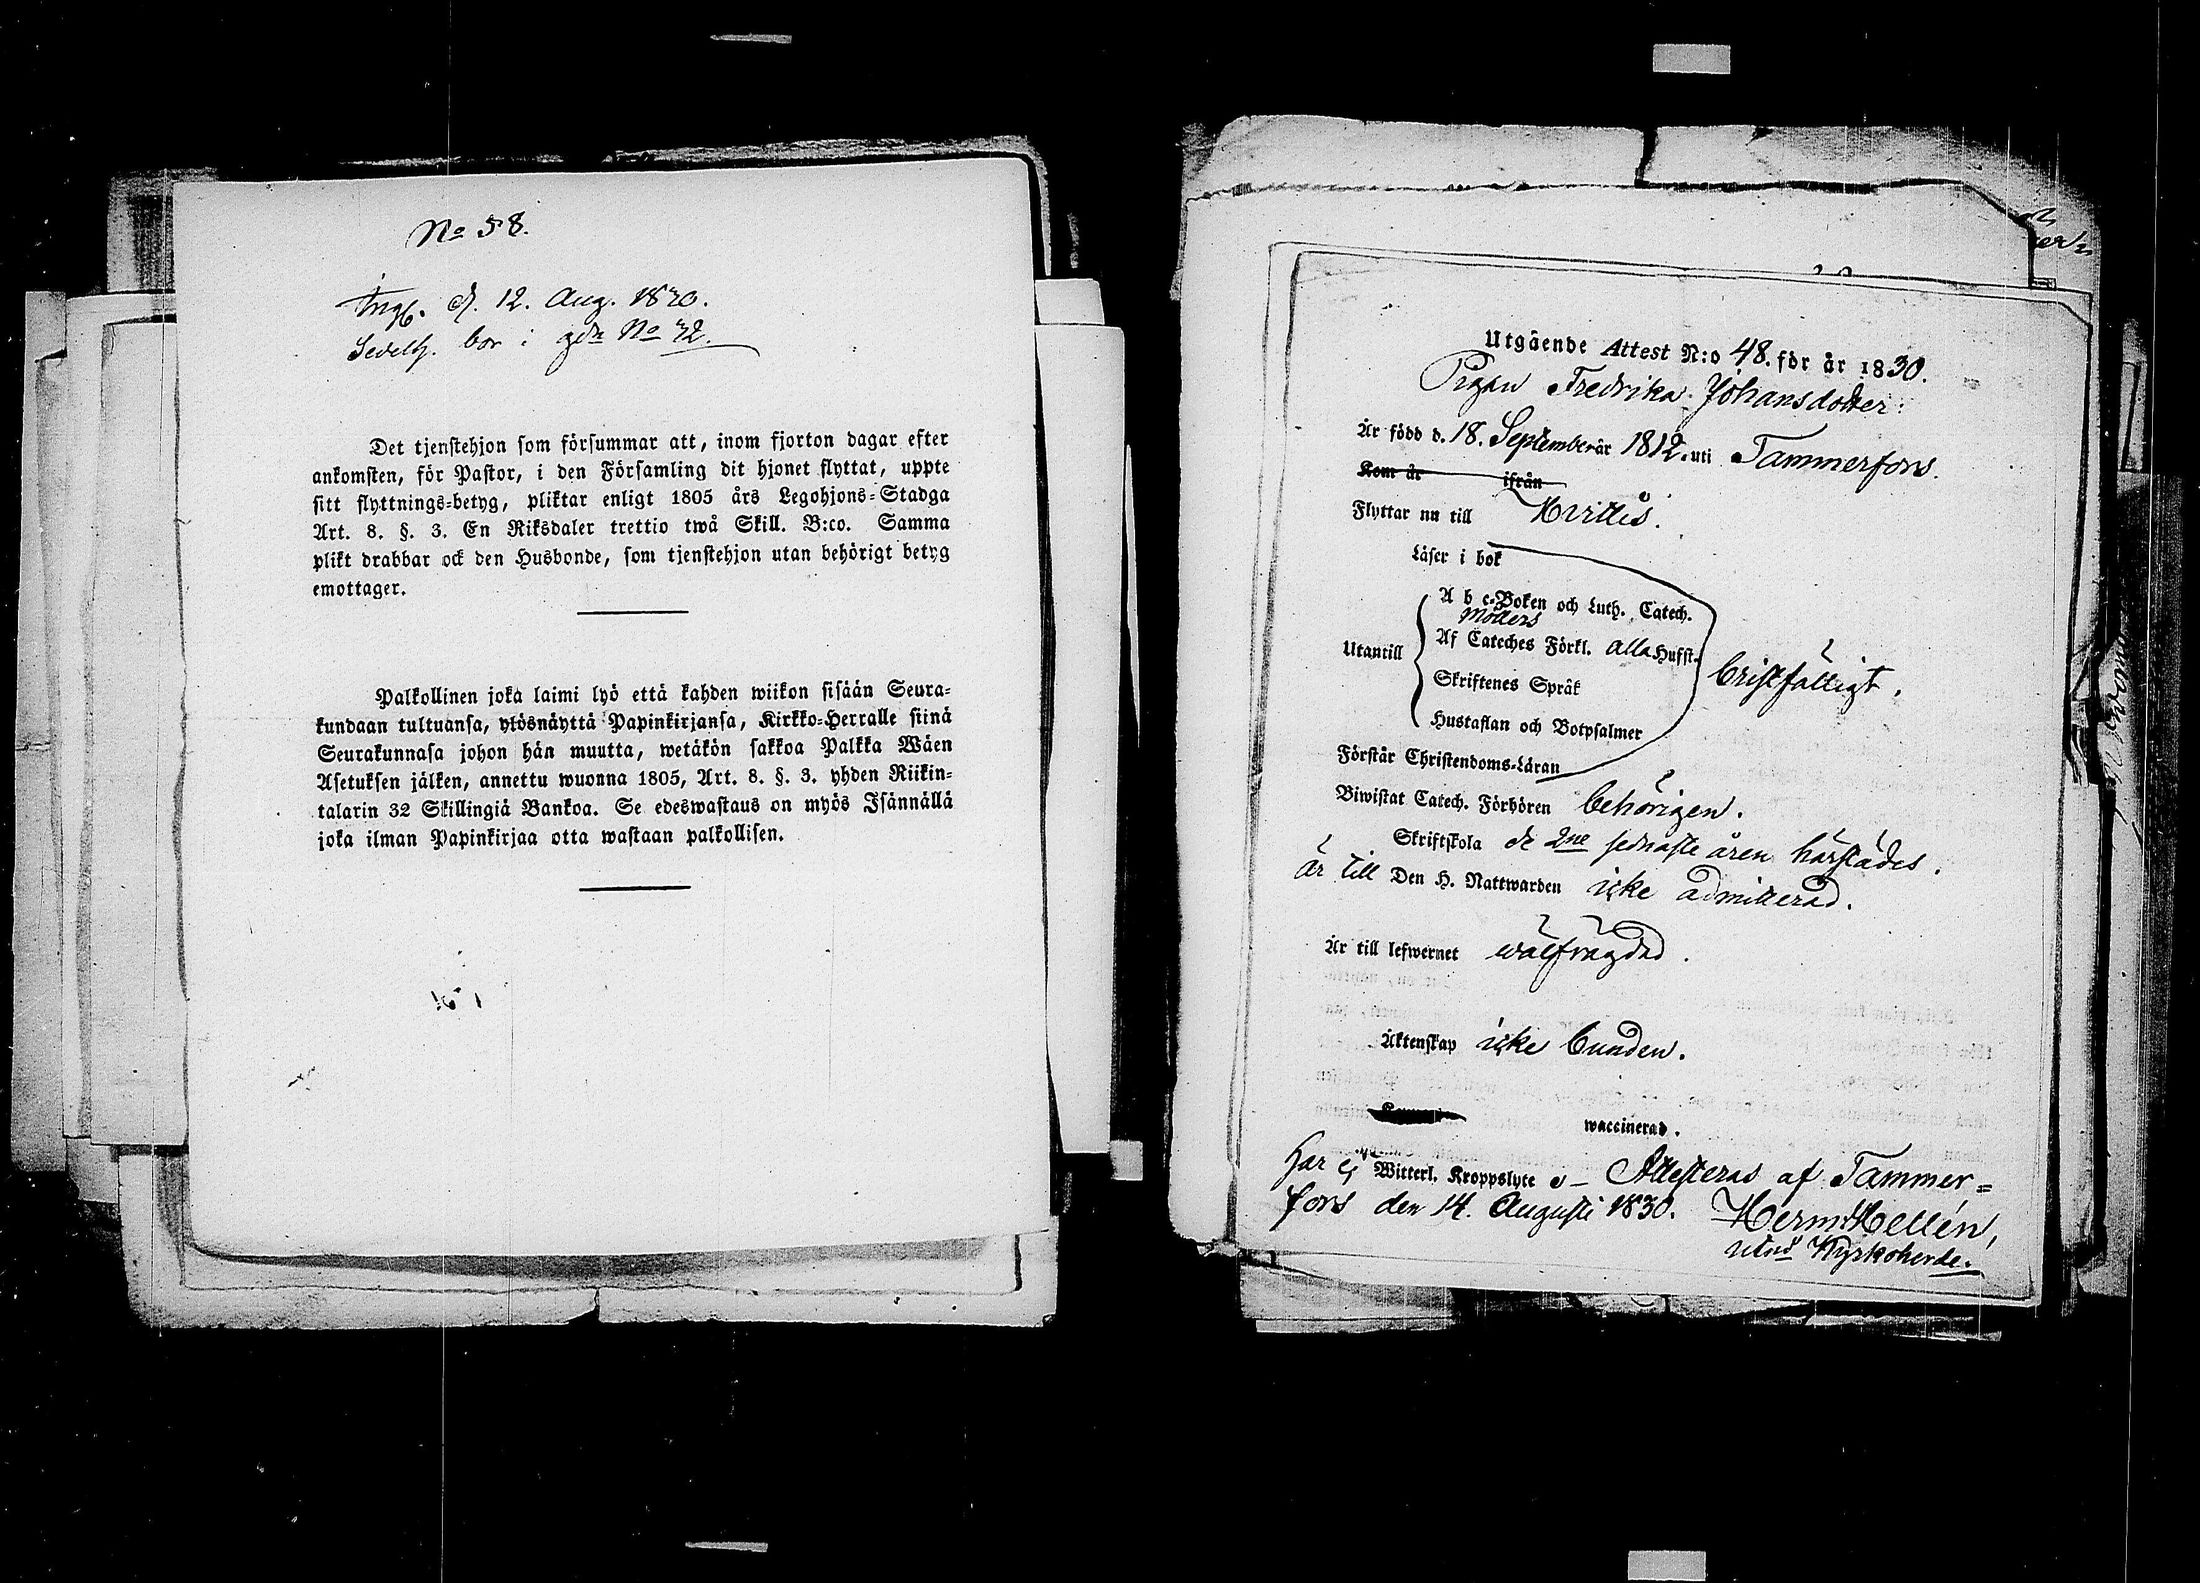 No 58.
Ingf. d. 12. Aug. 1830.
Sedelh. bor i gdn No 32.
Det tjenstehjon som försummar att, inom fjorton dagar efter
ankomsten, för Pastor, i den Församling dit hjonet flyttat, uppte
sitt flyttnings-betyg, pliktar enligt 1805 års Legohjons-Stadga
Art. 8. §. 3. En Riksdaler trettio twå Skill. B:co. Samma
plikt drabbar ock den Husbonde, som tjenstehjon utan behörigt betyg
emottager.
Palkollinen joka laimi lyö että kahden wiikon sisään Seura-
kundaan tultuansa, ylösnäyttä Papinkirjansa, Kirkko-Herralle siinä
Seurakunnasa johon hän muutta, wetäkön sakkoa Palkka Wäen
Asetuksen jälken, annettu wuonna 1805, Art. 8. §. 3. yhden Riikin-
talarin 32 Skillingiä Bankoa. Se edeswastaus on myös Isännällä
joka ilman Papinkirjaa otta wastaan palkollisen.
Utgående Attest N:o 48. för år 1830.
Pigan Fredrika Johansdotter.
Är född d. 18. September år 1812. uti Tammerfors.
Kom år ifrån
Flyttar nu till Hvittis.
Läser i bok
A b c-Boken och Luth. Catech.
Möllers
Utantill Af Cateches Förkl. alla Hufst.
Skriftenes Språk
bristfälligt.
Hustaflan och Botpsalmer
Förstår Christendoms-Läran
Biwistat Catech. Förhören behörigen.
Skriftskola de 2ne sednaste åren härstädes.
är till Den H. Nattwarden icke admitterad.
Är till lefwernet wälfrägdad.
Äktenskap icke bunden.
waccinerad.
har ej Witterl. Kroppslyte – Attesteras af Tammer=
fors den 14. Augusti 1830. Herm. Hellén,
Kyrkoherde.